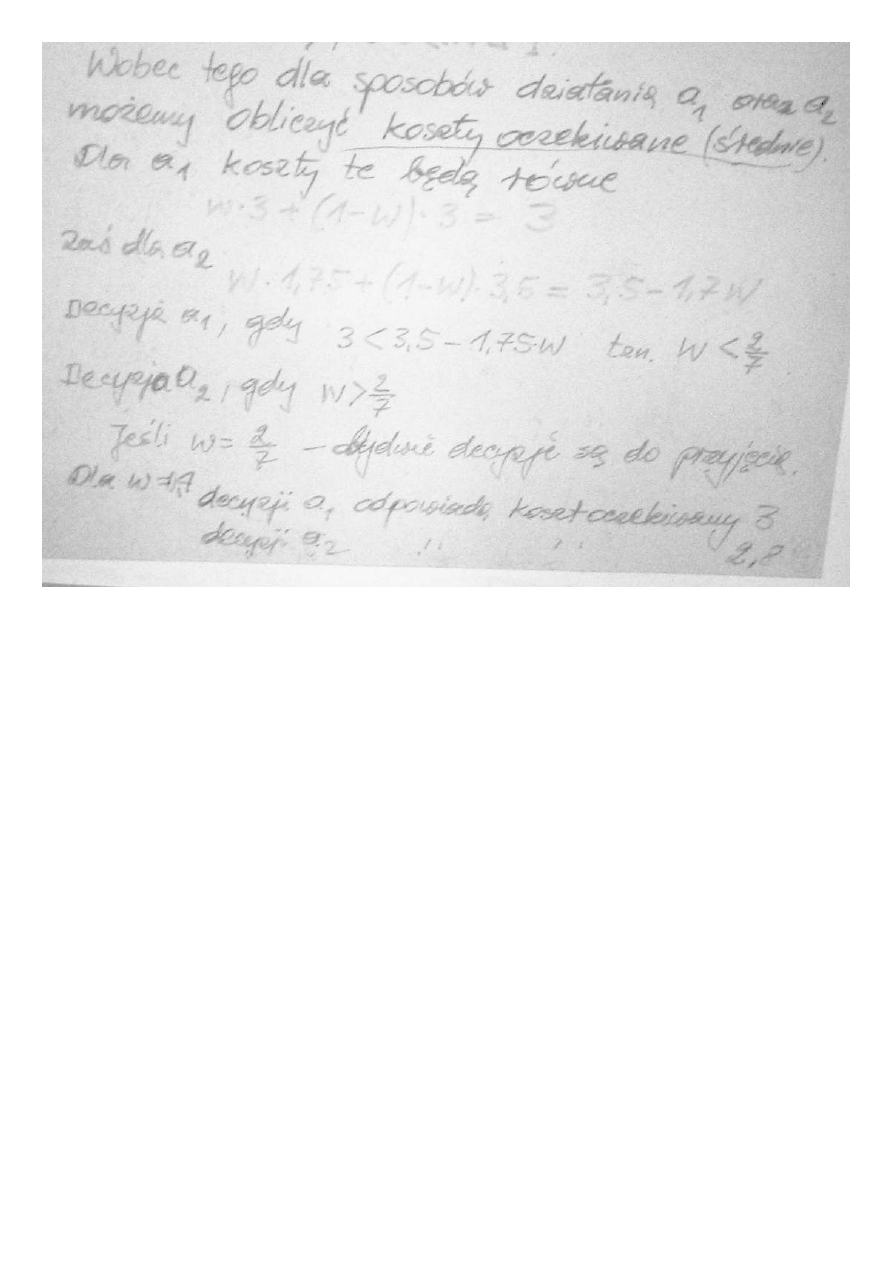 Wobec tego dla sposobów działania a₁ oraz a₂
możemy obliczyć koszty oczekiwane (średnie).
Dla a₁ koszty te będą równe
w·3 + (1-w)·3 = 3
zaś dla a₂
w·1,75 + (1-w)·3,5 = 3,5 - 1,7w
Decyzja a₁, gdy 3 < 3,5 - 1,75·w tzn. w < 2/7
Decyzja a₂, gdy w > 2/7
Jeśli w = 2/7 - obydwie decyzje są do przyjęcia.
Dla w
decyzji a₁ odpowiada koszt oczekiwany 3
decyzji a₂ '' '' 2,8